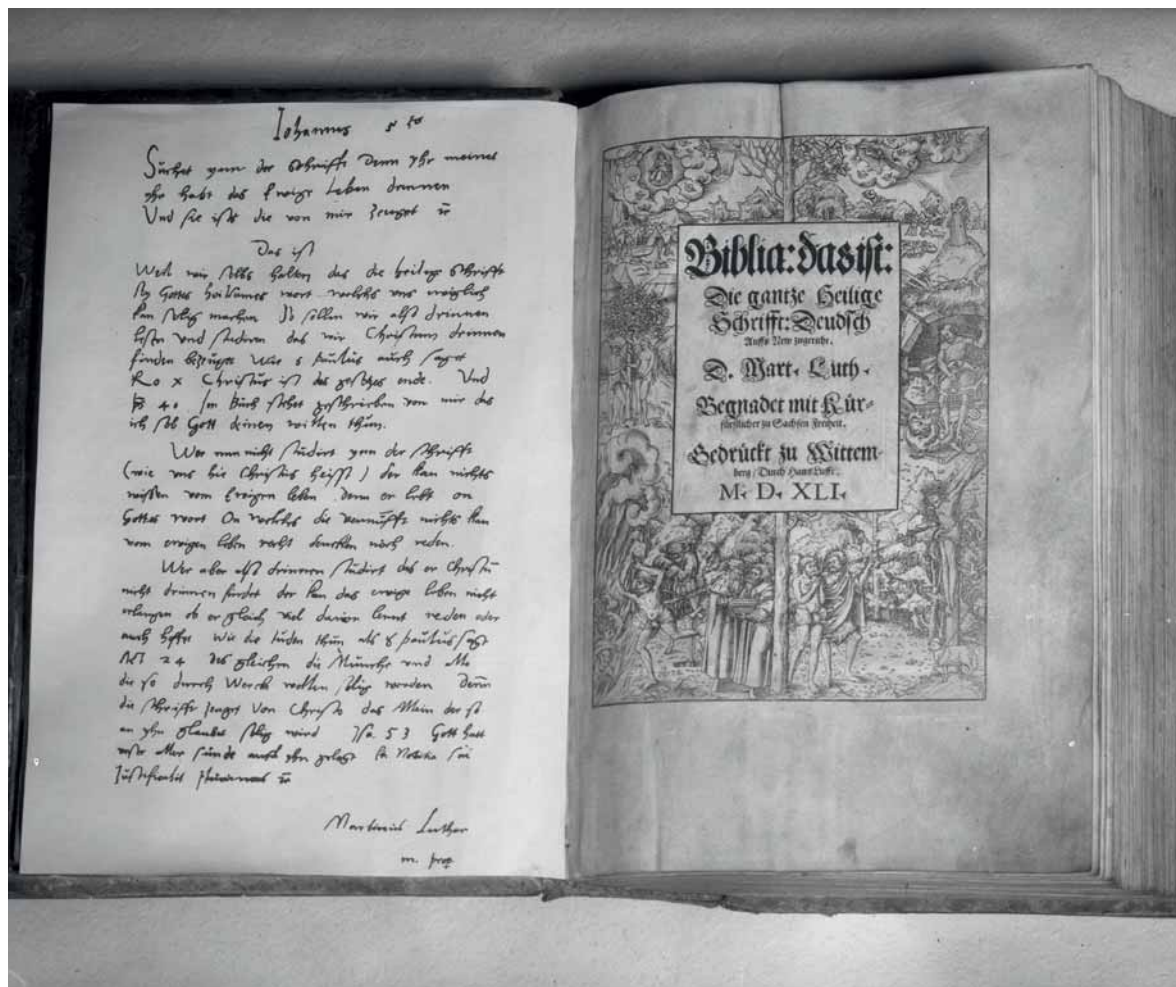 Johannes 5
Suchet ynn der Schrifft Denn yhr meinet
yhr habt das Ewige Leben drinnen
Und sie ists die von mir Zeuget
Das ist
Weil wir selbs halten das die heilige Schrifft
sey Gottes heilsames wort welchs uns ewiglich
kan selig machen So sollen wir also drinnen
lesen und studiren das wir Christum drinnen
finden bezeuget Wie S Paulus auch saget
Ro x Christus ist des gesetzes ende. Und
ps 40 Im Buch stehet geschrieben von mir das
ich sol Gott deinen willen thun.
Wer nun nicht studirt ynn der Schrifft
(wie uns hie Christus heisst) der kan nichts
wissen vom Ewigen leben denn er lebt on
Gottes wort On welchs die vernunfft nichts kan
vom ewigen leben recht dencken noch reden.
Wer aber also drinnen studirt das er Christu
nicht drinnen findet der kan das ewige leben nicht
erlangen ob er gleich viel davon lernt reden oder
auch hoffet Wie die Juden thun als S Paulus sagt
Act 24 des gleichen die Munche und alle
die so durch Werck wollen selig werden Denn
die schrifft zeuget Von Christo das Allein der so
an yhn glaubet selig wird Isa 53 Gott hatt
unser aller sunde auff yhn gelegt
Martinus Luther
Biblia: das ist:
Die gantze Heilige
Schrifft: Deudsch
Auffs New zugericht.
D. Mart. Luth.
Begnadet mit Kür-
fürstlicher zu Sachsen Freiheit.
Gedrückt zu Wittem-
berg / Durch Hans Lufft.
M. D. XLI.